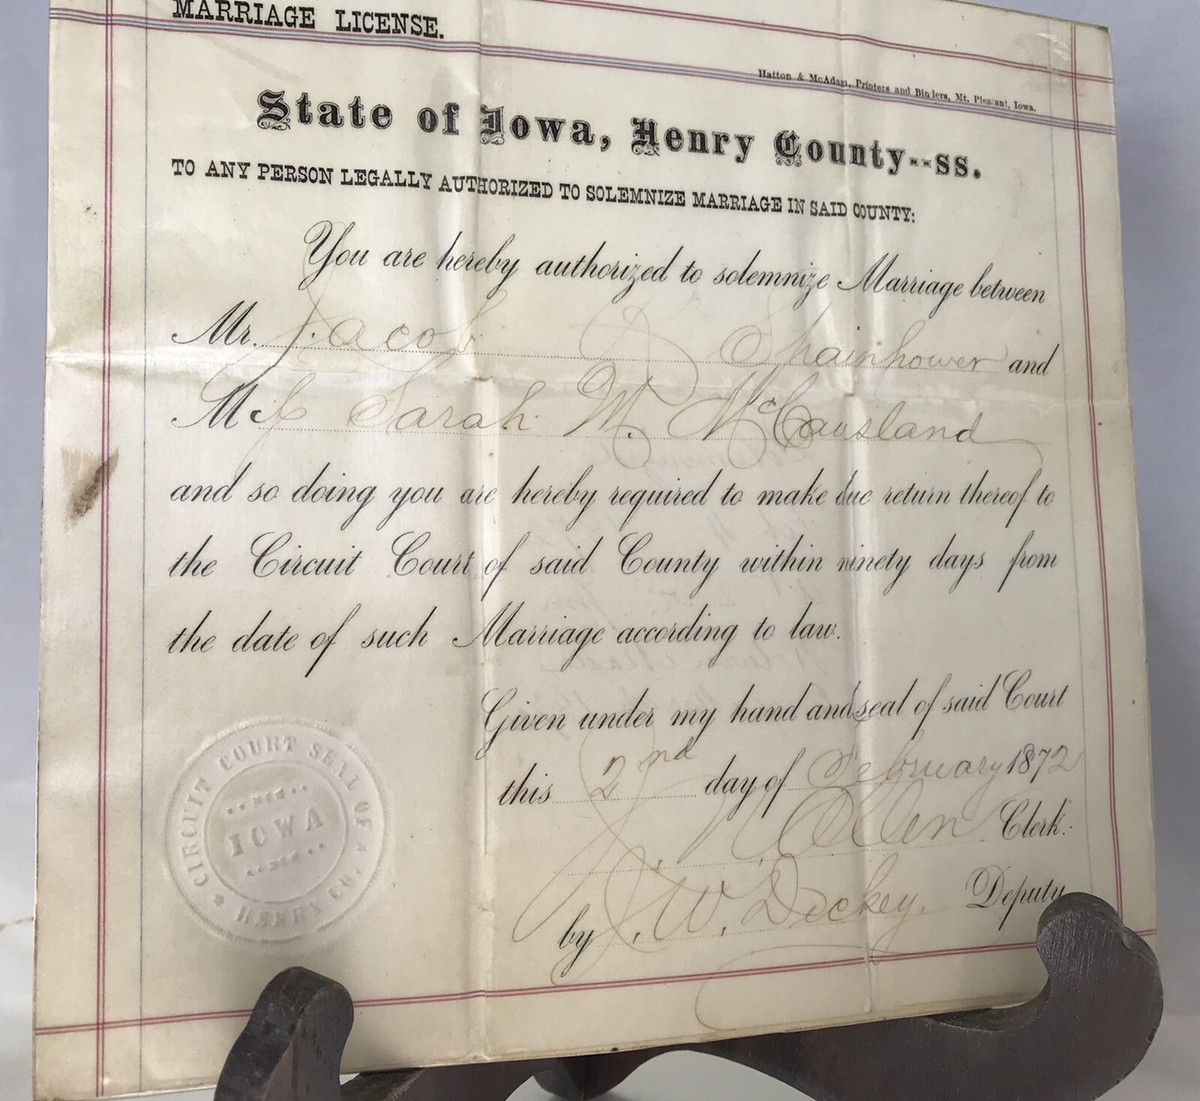 MARRIAGE LICENSE.
Hatton & McAdam, Printers and Binders, Mt. Pleasant, Iowa.
State of Iowa, Henry County--ss.
TO ANY PERSON LEGALLY AUTHORIZED TO SOLEMNIZE MARRIAGE IN SAID COUNTY:
You are hereby authorized to solemnize Marriage between
Mr. Jacob D Shainhower and
Ms Sarah M. McCausland
and so doing you are hereby required to make due return thereof to
the Circuit Court of said County within ninety days from
the date of such Marriage according to law.
Given under my hand and seal of said Court
this 2nd day of February 1872
Clerk.
by J. W. Dickey. Deputy
CIRCUIT COURT SEAL OF
IOWA
HENRY CO.